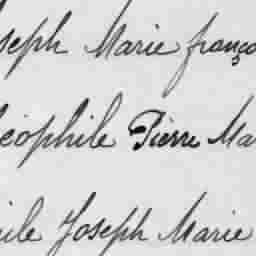 seph Marie franço
éophile Pierre Ma
ile Joseph Marie